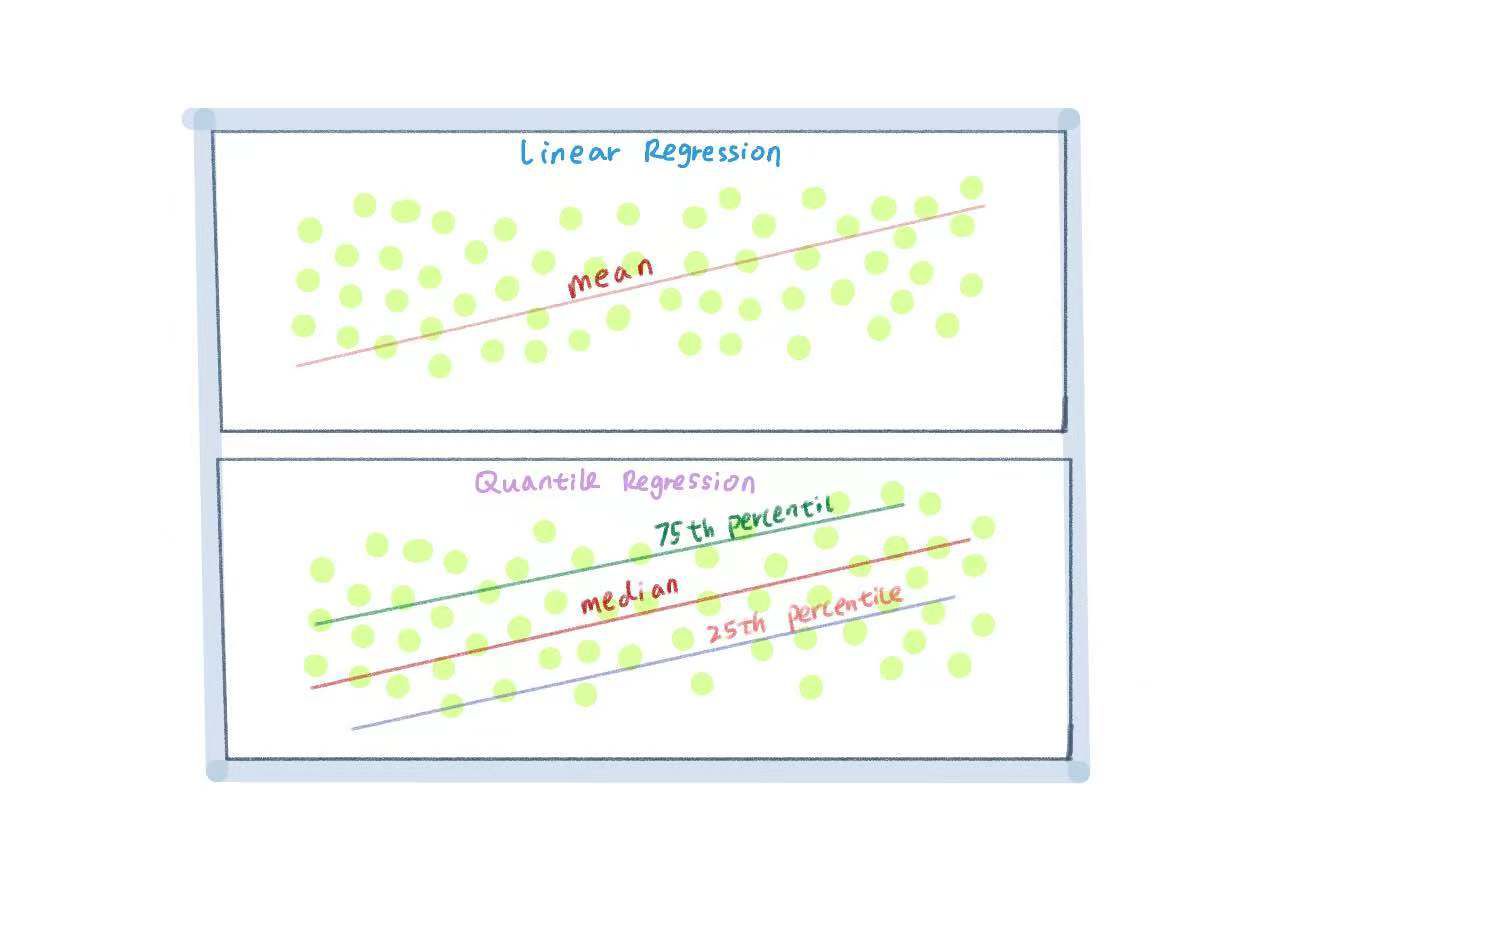 Linear Regression
mean
Quantile Regression
75th percentil
median
25th percentile